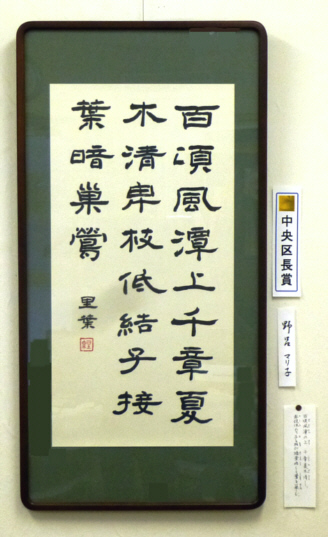 百頃風潭上千章夏
木清卑枝低結子接
葉暗巣鶯
里葉
中央区長賞
野呂 マリ子